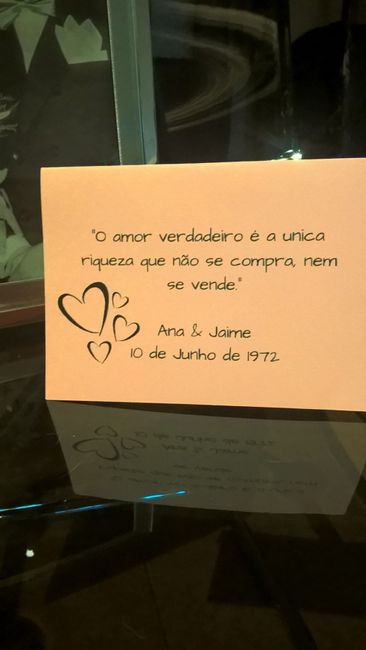 "O amor verdadeiro é a unica
riqueza que não se compra, nem
se vende."
Ana & Jaime
10 de Junho de 1972